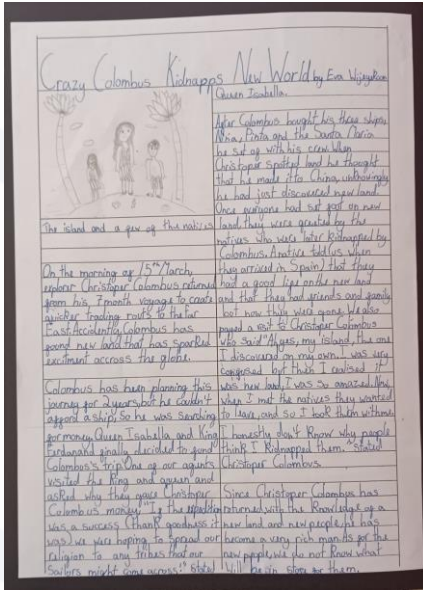 Crazy Colombus Kidnapps New World by Eva
The island and a few of the natives
On the morning of 15th March,
explorer Christoper Colombus returned
from his 7 month voyage to create
a quicker trading route to the Far
East. Accidently, Colombus has
found new land that has sparked
excitment accross the globe.
Colombus has been planning this
journey for 2 years but he couldn't
afford a ship, So he was searching
for money. Queen Isabella and King
Ferdanand finally decided to fund
Colombus's trip. One of our agents
visited the King and queen and
asked why they gave Christoper
Colombus money. "If the expedition
was a success (thank goodness it
was) we were hoping to spread our
religion to any tribes that our
Sailors might come across." Stated
Queen Isabella.
After Colombus bought his three ships,
Niña, Pinta and the Santa Maria
he set of with his crew. When
Christoper spotted land he thought
that he made it to China, unknowingly
he had just discovered new land.
Once everyone had set foot on new
land, they were greeted by the
natives who were later kidnapped by
Colombus. A native told us when
they arrived in Spain) that they
had a good life on the new land
and that they had friends and family
but now they were gone. We also
payed a visit to Christoper Colombus
who said "Ahges, my island, the one
I discovered on my own. I was very
confused but then I realised it
was new land, I was so amazed. And
when I met the natives they wanted
to leave, and so I took them with me.
I honestly don't know why people
think I Kidnapped them." stated
Christoper Colombus.
Since Christoper Colombus has
returned with the Knowledge of a
new land and new people, he has
become a very rich man. As for the
new people, we do not know what
will be in store for them.